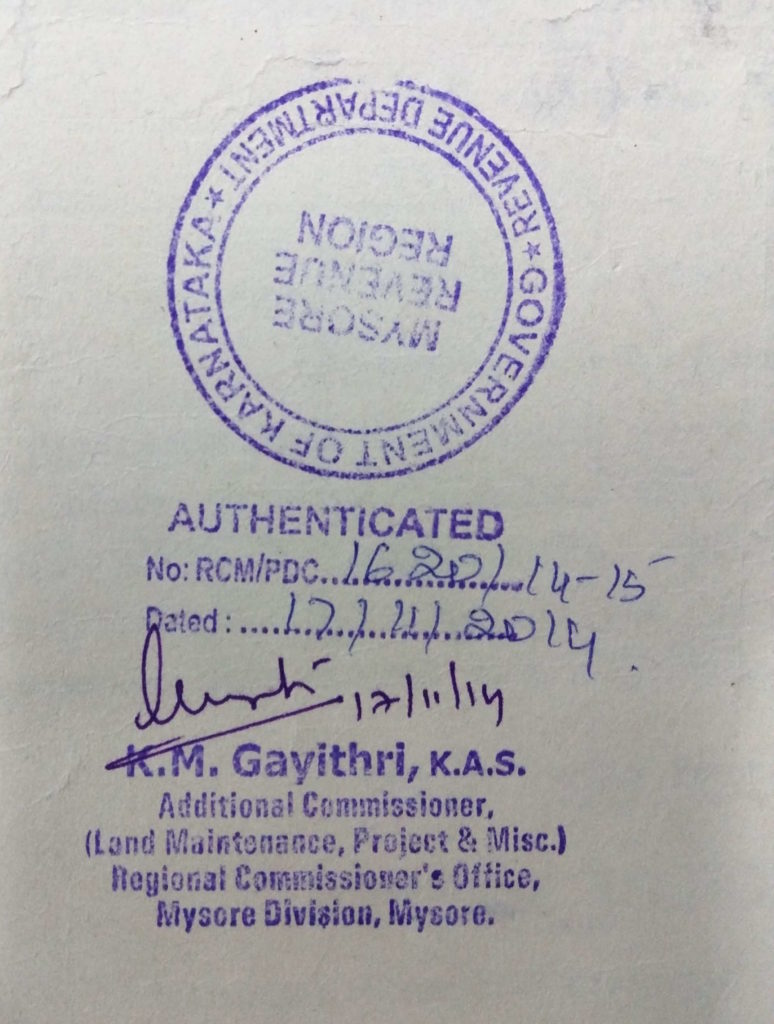 ★ GOVERNMENT OF KARNATAKA ★ REVENUE DEPARTMENT
MYSORE
REVENUE
REGION
AUTHENTICATED
No: RCM/PDC...1620/14-15
Dated : ....17/11/2014.
17/11/14
K.M. Gayithri, K.A.S.
Additional Commissioner,
(Land Maintenance, Project & Misc.)
Regional Commissioner's Office,
Mysore Division, Mysore.